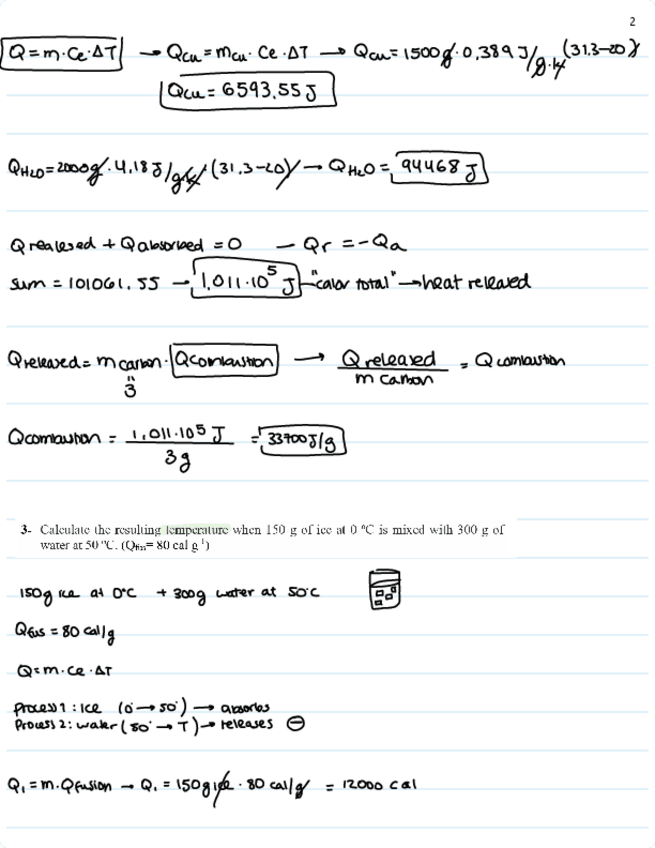 2
Q=m·Ce·ΔT → Qcu=mcu·Ce·ΔT → Qcu=1500g·0,389 J/g·k (31.3-20)
Qcu=6593,55 J
QH2O=2000g·4,18 J/gk (31,3-20) → QH2O= 94468 J
Q realesed + Q absorbed =0 → Qr=-Qa
sum = 101061,55 → 1,011·10⁵ J → "calor total" → heat released
Q released= m carbon·Qcombustion → Q released / m carbon = Q combustion
"
3
Qcombustion = 1,011·10⁵ J / 3g = 33700 J/g
3- Calculate the resulting temperature when 150 g of ice at 0 ºC is mixed with 300 g of
water at 50 ºC. (Qfus= 80 cal g⁻¹)
150g ice at 0°C + 300g water at 50°C
Qfus = 80 cal/g
Q=m·Ce·ΔT
Process 1: Ice (0°→50°) → absorbs
Process 2: water (50°→T) → releases ⊖
Q₁=m·Qfusion → Q₁=150g ice·80 cal/g = 12000 cal